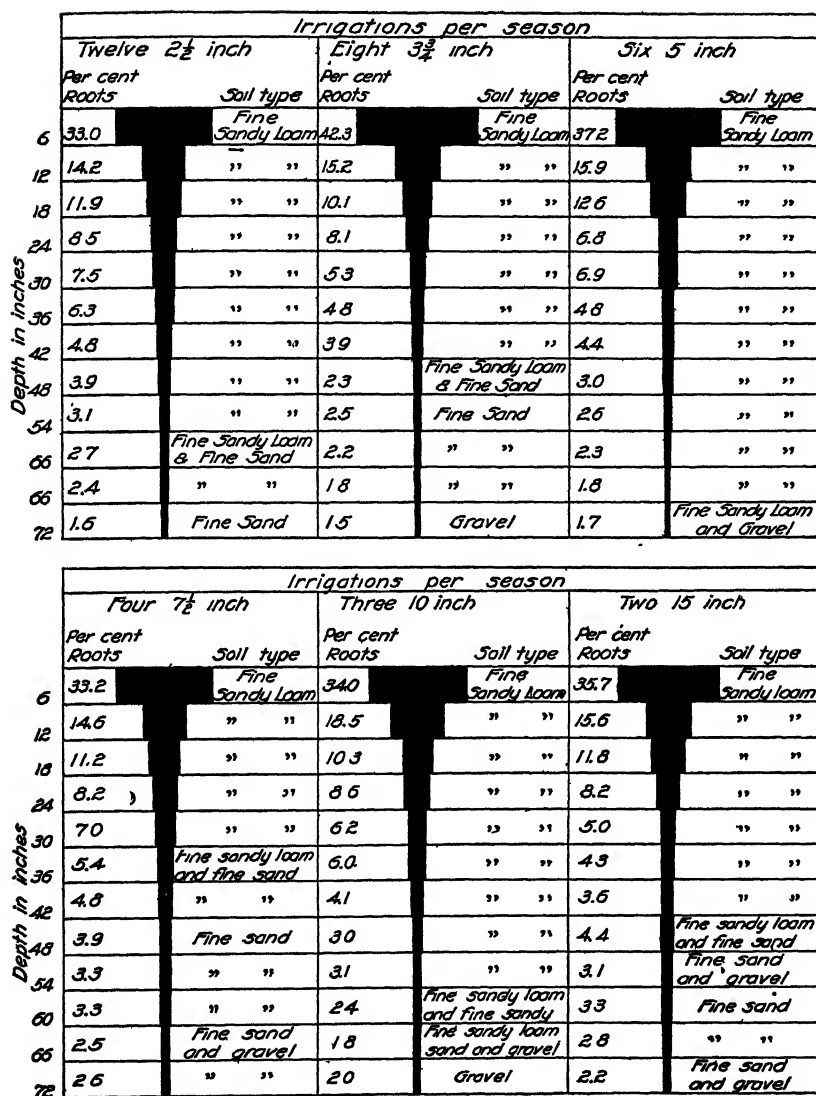 Irrigations per season
Twelve 2½ inch Eight 3¾ inch Six 5 inch
Per cent Roots Soil type Per cent Roots Soil type Per cent Roots Soil type
Depth in inches
6 33.0 Fine Sandy Loam 42.3 Fine Sandy Loam 37.2 Fine Sandy Loam
12 14.2 " " 15.2 " " 15.9 " "
18 11.9 " " 10.1 " " 12.6 " "
24 8.5 " " 8.1 " " 6.8 " "
30 7.5 " " 5.3 " " 6.9 " "
36 6.3 " " 4.8 " " 4.8 " "
42 4.8 " " 3.9 " " 4.4 " "
48 3.9 " " 2.3 Fine Sandy Loam & Fine Sand 3.0 " "
54 3.1 " " 2.5 Fine Sand 2.6 " "
66 2.7 Fine Sandy Loam & Fine Sand 2.2 " " 2.3 " "
66 2.4 " " 1.8 " " 1.8 " "
72 1.6 Fine Sand 1.5 Gravel 1.7 Fine Sandy Loam and Gravel
Irrigations per season
Four 7½ inch Three 10 inch Two 15 inch
Per cent Roots Soil type Per cent Roots Soil type Per cent Roots Soil type
Depth in inches
6 33.2 Fine Sandy Loam 34.0 Fine Sandy Loam 35.7 Fine Sandy loam
12 14.6 " " 18.5 " " 15.6 " "
18 11.2 " " 10.3 " " 11.8 " "
24 8.2 " " 8.6 " " 8.2 " "
30 7.0 " " 6.2 " " 5.0 " "
36 5.4 Fine sandy loam and fine sand 6.0 " " 4.3 " "
42 4.8 " " 4.1 " " 3.6 " "
48 3.9 Fine sand 3.0 " " 4.4 Fine sandy loam and fine sand
54 3.3 " " 3.1 " " 3.1 Fine sand and gravel
60 3.3 " " 2.4 Fine sandy loam and fine sandy 3.3 Fine sand
66 2.5 Fine sand and gravel 1.8 Fine sandy loam sand and gravel 2.8 " "
72 2.6 " " 2.0 Gravel 2.2 Fine sand and gravel